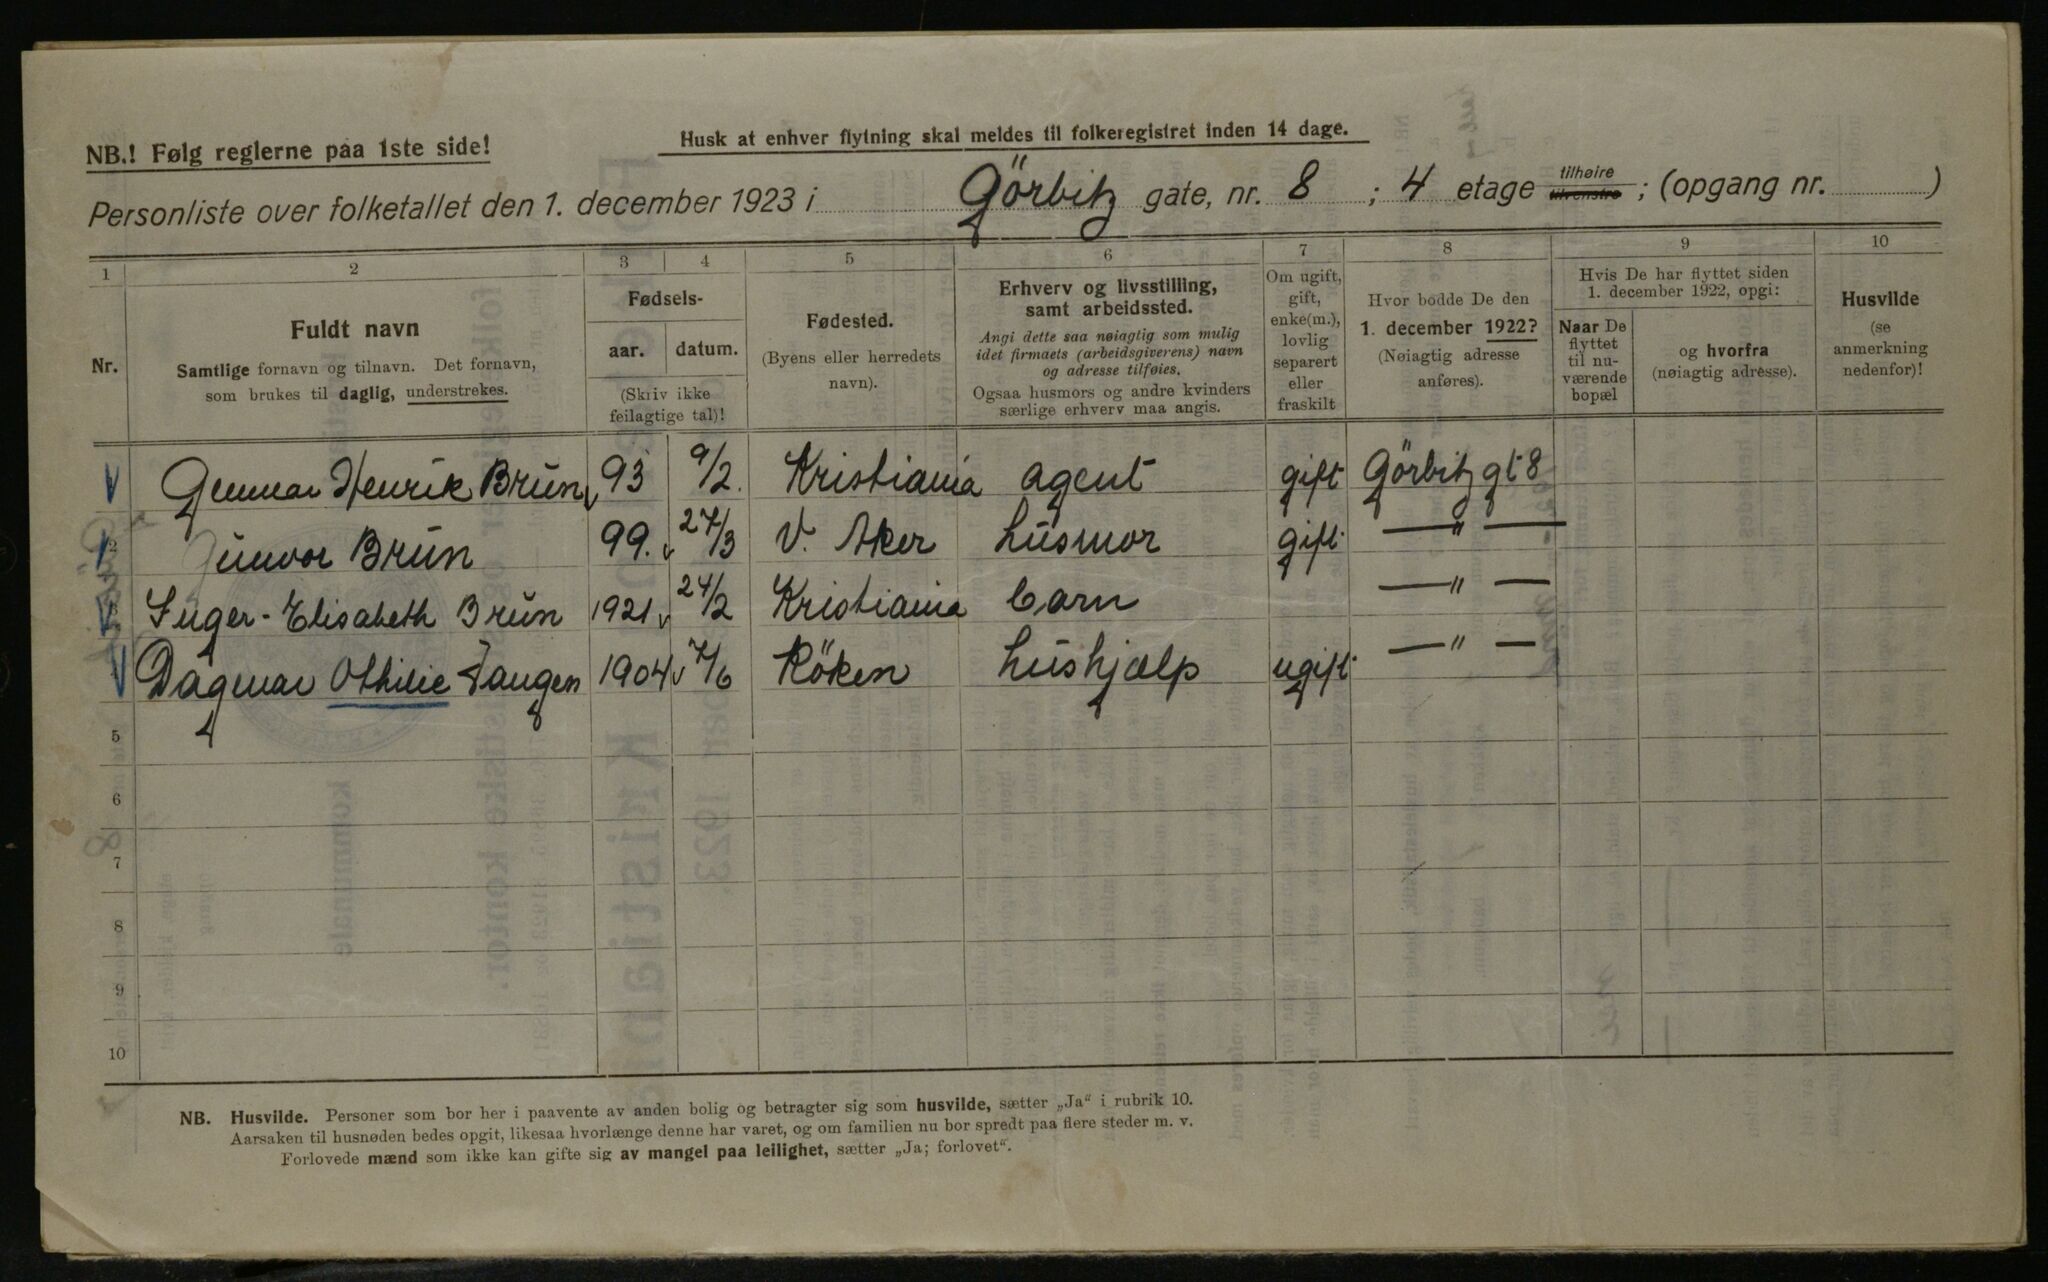 NB.! Følg reglerne paa 1ste side!
Husk at enhver flytning skal meldes til folkeregistret inden 14 dage.
Personliste over folketallet den 1. december 1923 i Görbitz gate, nr. 8 ; 4 etage tilhøire tilvenstre ; (opgang nr. )
1 2 3 4 5 6 7 8 9 10
Nr.
Fuldt navn
Samtlige fornavn og tilnavn. Det fornavn,
som brukes til daglig, understrekes.
Fødsels-
aar. datum.
(Skriv ikke
feilagtige tal)!
Fødested.
(Byens eller herredets
navn).
Erhverv og livsstilling,
samt arbeidssted.
Angi dette saa nøiagtig som mulig
idet firmaets (arbeidsgiverens) navn
og adresse tilføies.
Ogsaa husmors og andre kvinders
særlige erhverv maa angis.
Om ugift,
gift,
enke(m.),
lovlig
separert
eller
fraskilt
Hvor bodde De den
1. december 1922?
(Nøiagtig adresse
anføres).
Hvis De har flyttet siden
1. december 1922, opgi:
Naar De
flyttet
til nu-
værende
bopæl
og hvorfra
(nøiagtig adresse).
Husvilde
(se
anmerkning
nedenfor)!
Gunnar Henrik Brun 93 9/2. Kristiania agent gift Görbitz gt 8
2 Gunvor Brun 99. 27/3 V. Aker husmor gift. — " —
Inger-Elisabeth Brun 1921 24/2 Kristiania barn — " —
Dagmar Othilie Tangen 1904 7/6 Röken hushjælp ugift — " —
5
6
7
8
9
10
NB. Husvilde. Personer som bor her i paavente av anden bolig og betragter sig som husvilde, sætter „Ja“ i rubrik 10.
Aarsaken til husnøden bedes opgit, likesaa hvorlænge denne har varet, og om familien nu bor spredt paa flere steder m. v.
Forlovede mænd som ikke kan gifte sig av mangel paa leilighet, sætter „Ja; forlovet“.